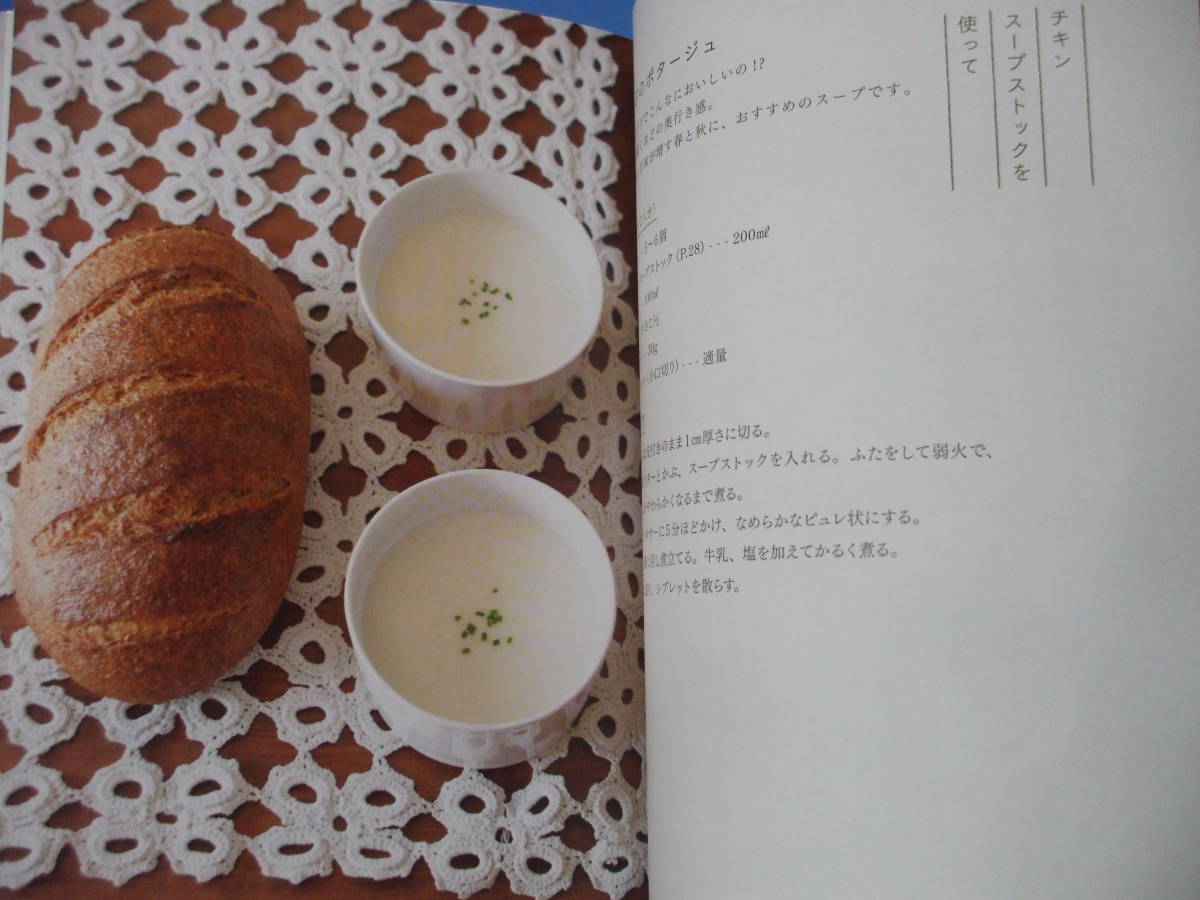 チキン
スープストックを
使って
のポタージュ
でこんなにおいしいの!?
ほどの奥行き感。
が増す春と秋に、おすすめのスープです。
5~6個
ープストック(P.28) --- 200㎖
30g
(小口切り) --- 適量
皮付きのまま1㎝厚さに切る。
ターとかぶ、スープストックを入れる。ふたをして弱火で、
やわらかくなるまで煮る。
サーに5分ほどかけ、なめらかなピュレ状にする。
に戻し煮立てる。牛乳、塩を加えてかるく煮る。
シブレットを散らす。